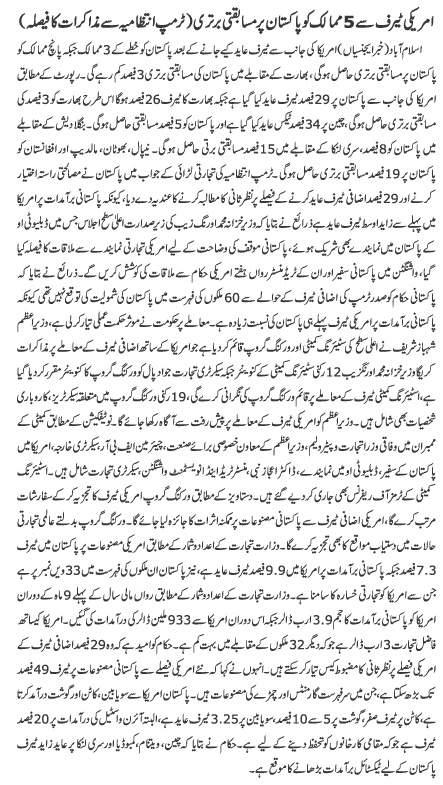 امریکی ٹیرف سے 5 ممالک کو پاکستان پر مسابقتی برتری (ٹرمپ انتظامیہ سے مذاکرات کا فیصلہ)
اسلام آباد (خبر ایجنسیاں) امریکا کی جانب سے ٹیرف عاید کیے جانے کے بعد پاکستان کو خطے کے 3 ممالک جبکہ پانچ ممالک کو
پاکستان پر مسابقتی برتری حاصل ہوگی، بھارت کے مقابلے میں پاکستان کی مسابقتی برتری 3 فیصد کم رہے گی۔ رپورٹ کے مطابق
امریکا کی جانب سے پاکستان پر 29 فیصد ٹیرف عاید کیا گیا ہے جبکہ بھارت کا ٹیرف 26 فیصد ہوگا اس طرح بھارت کو 3 فیصد کی
مسابقتی برتری حاصل ہوگی، چین پر 34 فیصد ٹیکس عاید کیا گیا ہے اور پاکستان کو 5 فیصد مسابقتی برتری حاصل ہوگی۔ بنگلادیش کے مقابلے میں
پاکستان کو 8 فیصد، سری لنکا کے مقابلے میں 15 فیصد مسابقتی برتی حاصل ہوگی۔ نیپال، بھوٹان، مالدیپ اور افغانستان کو
پاکستان پر 19 فیصد مسابقتی برتری حاصل ہوگی۔ ٹرمپ انتظامیہ کی تجارتی لڑائی کے جواب میں پاکستان نے مصالحتی راستہ اختیار
کرنے اور 29 فیصد اضافی ٹیرف عاید کرنے کے فیصلے پر نظرثانی کا مطالبہ کرنے کا عندیہ دے دیا، کیونکہ پاکستانی برآمدات پر امریکا
میں پہلے سے زاید اوسط ٹیرف عاید ہے ذرائع نے بتایا کہ وزیر خزانہ محمد اورنگ زیب کی زیر صدارت اعلیٰ سطح اجلاس جس میں ڈبلیو ٹی او
کے پاکستان میں نمایندے بھی شریک ہوئے، پاکستانی موقف کی وضاحت کے لیے امریکی تجارتی نمایندے سے ملاقات کا فیصلہ کیا
گیا، واشنگٹن میں پاکستانی سفیر اور ان کے ٹریڈ منسٹر رواں ہفتے امریکی حکام سے ملاقات کی کوشش کریں گے۔ ذرائع نے بتایا کہ
پاکستانی حکام کو صدر ٹرمپ کی اضافی ٹیرف کے حوالے سے 60 ملکوں کی فہرست میں پاکستان کی شمولیت کی توقع نہیں تھی کیونکہ
پاکستانی برآمدات پر امریکی ٹیرف پہلے ہی پاکستان کی نسبت زیادہ ہے۔ معاملے پر حکومت نے موثر حکمت عملی تیار کر لی ہے، وزیراعظم
شہباز شریف نے اعلیٰ سطح کی سٹیئرنگ کمیٹی اور ورکنگ گروپ قائم کر دیا ہے جو امریکا کے ساتھ اضافی ٹیرف کے معاملے پر مذاکرات
کریگا وزیر خزانہ محمد اورنگزیب 12 رکنی سٹیئرنگ کمیٹی کے کنوینئر جبکہ سیکرٹری تجارت جواد پال کو ورکنگ گروپ کا کنوینئر مقرر کر دیا گیا
ہے، اسٹیئرنگ کمیٹی ٹیرف کے معاملے پر قائم ورکنگ گروپ کی نگرانی کرے گی۔ 19 رکنی ورکنگ گروپ میں متعلقہ سیکرٹریز، کاروباری
شخصیات بھی شامل ہیں۔ وزیراعظم کو امریکی ٹیرف کے معاملے پر پیش رفت سے آگاہ رکھا جائے گا۔ نوٹیفکیشن کے مطابق کمیٹی کے
ممبران میں وفاقی وزرا تجارت و پیٹرولیم، وزیراعظم کے معاون خصوصی برائے صنعت، چیئرمین ایف بی آر، سیکرٹری خارجہ، امریکا میں
پاکستان کے سفیر، ڈبلیو ٹی او میں نمایندے، ڈاکٹر اعجاز نبی، منسٹر ٹریڈ اینڈ انویسٹمنٹ واشنگٹن، سیکرٹری تجارت شامل ہیں۔ اسٹیئرنگ
کمیٹی کے ٹرمز آف ریفرنس بھی جاری کر دیے گئے ہیں۔ دستاویز کے مطابق ورکنگ گروپ امریکی ٹیرف کا تجزیہ کر کے سفارشات
مرتب کرے گا، امریکی اضافی ٹیرف سے پاکستانی مصنوعات پر ممکنہ اثرات کا جائزہ لیا جائے گا۔ ورکنگ گروپ بدلتے عالمی تجارتی
حالات میں دستیاب مواقع کا بھی تجزیہ کرے گا۔ وزارت تجارت کے اعداد و شمار کے مطابق امریکی مصنوعات پر پاکستان میں ٹیرف
7.3 فیصد جبکہ پاکستانی برآمدات پر امریکا میں 9.9 فیصد ٹیرف عاید ہے، نیز پاکستان ان ملکوں کی فہرست میں 33 ویں نمبر پر ہے
جن سے امریکا کو تجارتی خسارہ کا سامنا ہے۔ وزارت تجارت کے اعداد و شمار کے مطابق رواں مالی سال کے پہلے 9 ماہ کے دوران
امریکا کو پاکستانی برآمدات کا حجم 3.9 ارب ڈالر جبکہ اس دوران امریکا سے 933 ملین ڈالر کی درآمدات کی گئیں۔ امریکا کیساتھ
فاضل تجارت 3 ارب ڈالر ہے جو کہ دیگر 32 ملکوں کے مقابلے میں بہت کم ہے۔ حکام کو امید ہے کہ وہ 29 فیصد اضافی ٹیرف کے
امریکی فیصلے پر نظرثانی کا مضبوط کیس تیار کر سکتے ہیں۔ انہوں نے کہا کہ نئے امریکی فیصلے سے پاکستانی مصنوعات پر ٹیرف 49 فیصد
تک بڑھ سکتا ہے، جن میں سرفہرست گارمنٹس اور چمڑے کی مصنوعات ہیں۔ پاکستان امریکا سے سویا بین، کاٹن اور گوشت درآمد کرتا
ہے، کاٹن پر ٹیرف صفر گوشت پر 5 سے 10 فیصد، سویا بین پر 3.25 ٹیرف عاید ہے، البتہ آئرن و اسٹیل کی درآمدات پر 20 فیصد
ٹیرف ہے جو کہ مقامی کارخانوں کو تحفظ دینے کے لیے ہے۔ حکام نے بتایا کہ چین، ویتنام، کمبوڈیا اور سری لنکا پر عاید زاید ٹیرف
پاکستان کے لیے ٹیکسٹائل برآمدات بڑھانے کا موقع ہے۔